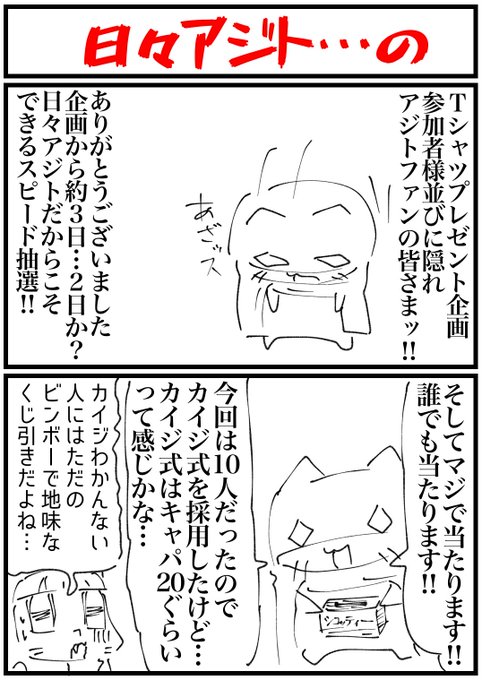 日々アジト…の
Tシャツプレゼント企画
参加者様並びに隠れ
アジトファンの皆さまッ!!
あざっス
ありがとうございました
企画から約3日…2日か?
日々アジトだからこそ
できるスピード抽選!!
そしてマジで当たります!!
誰でも当たります!!
シコッティー
今回は10人だったので
カイジ式を採用したけど…
カイジ式はキャパ20ぐらい
って感じかな…
カイジわかんない
人にはただの
ビンボーで地味な
くじ引きだよね…